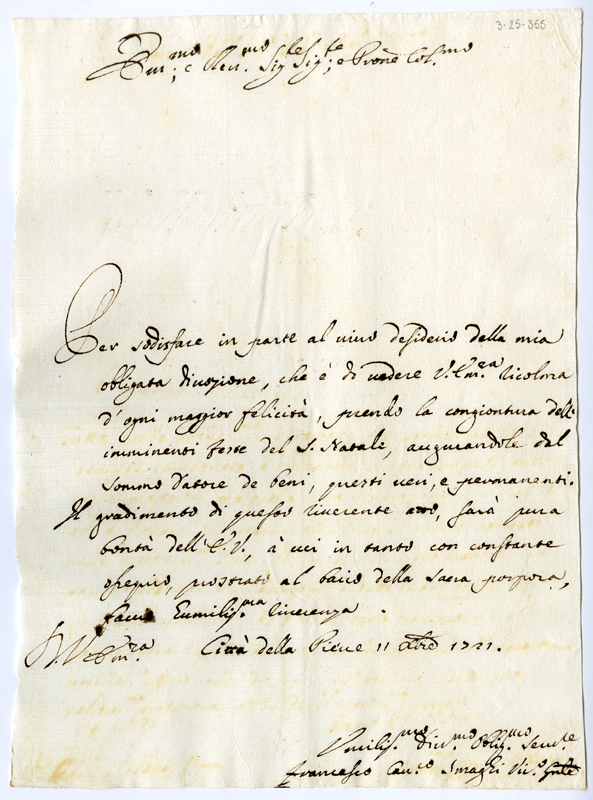 3-25-365
Em.mo e Rev.mo Sig.re Sig.re e Prone Col.mo
Per sodisfare in parte al vivo desiderio della mia
obligata divozione, che è di vedere V. Em.za ricolma
d'ogni maggior felicità, prendo la congiontura dell'
imminenti feste del S. Natale, augurandole dal
sommo Datore de beni, questi veri, e permanenti.
Il gradimento di questo riverente atto, sarà pura
bontà dell'E.V., à cui in tanto con constante
ossequio, prostrato al bacio della sacra porpora,
faccio humilis.ma riverenza.
Di V. Em.za Città della Pieve 11 Xbre 1721.
Umilis.mo Div.mo Oblig.mo Serv.re
Francesco Can.co Smaghi Vic.o Gnle